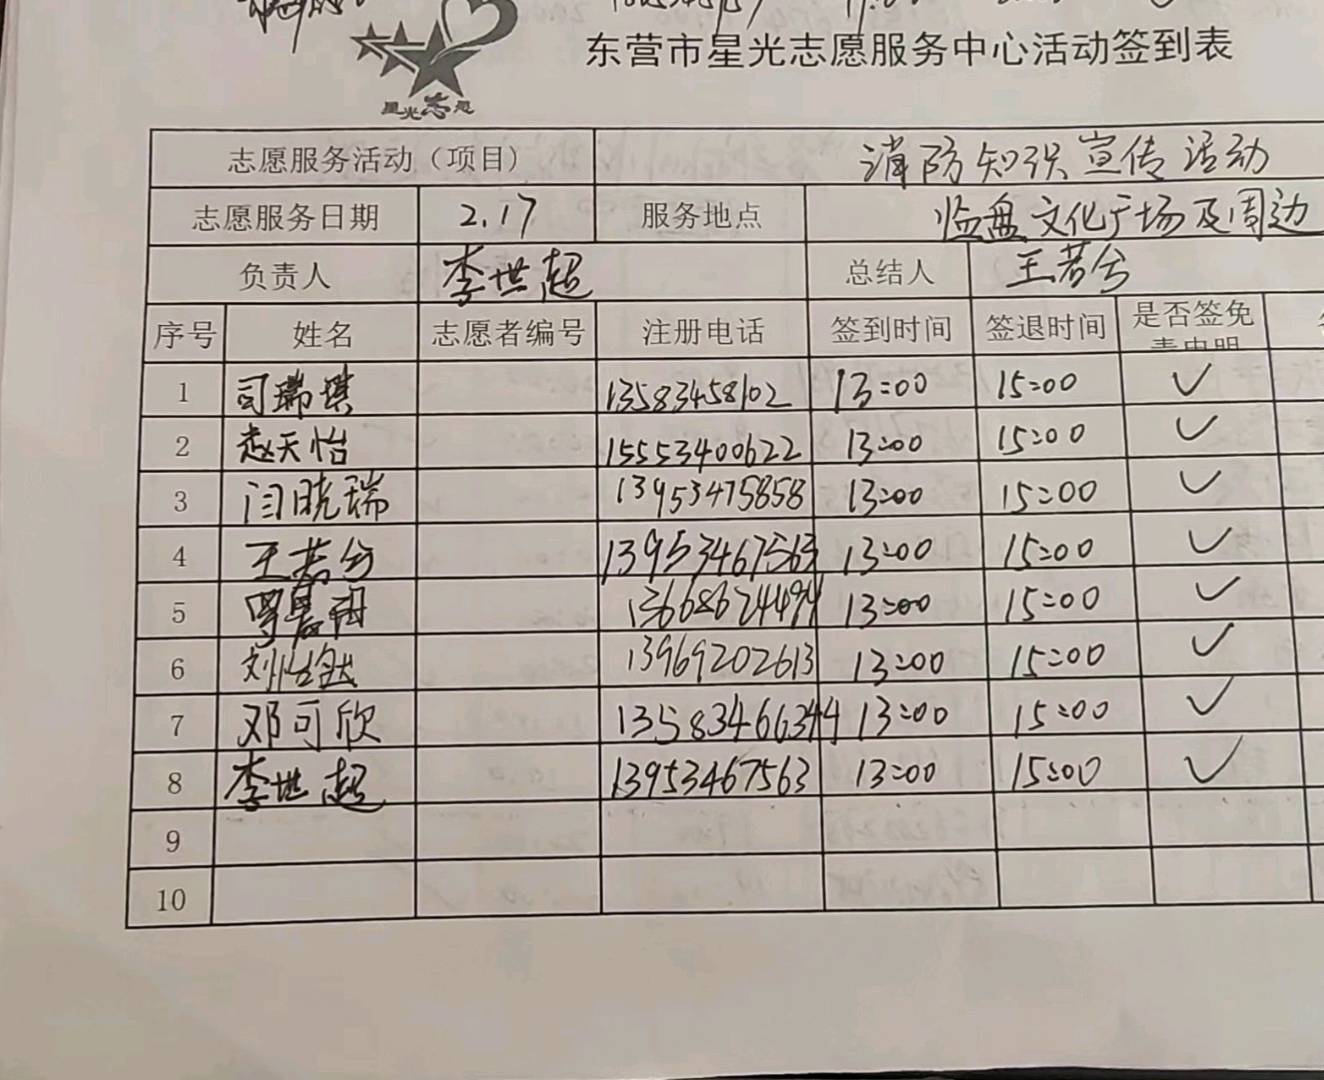 星光志愿
东营市星光志愿服务中心活动签到表
志愿服务活动（项目） 消防知识宣传活动
志愿服务日期 2.17 服务地点 临盘文化广场及周边
负责人 李世超 总结人 王若兮
序号 姓名 志愿者编号 注册电话 签到时间 签退时间 是否签免
责申明
1 司瑞琪 13583458102 13:00 15:00 ✓
2 赵天怡 15553400622 13:00 15:00 ✓
3 闫晓瑞 13953475858 13:00 15:00 ✓
4 王若兮 13953467563 13:00 15:00 ✓
5 13668624494 13:00 15:00 ✓
6 刘怡 13969202613 13:00 15:00 ✓
7 邓可欣 13583466344 13:00 15:00 ✓
8 李世超 13953467563 13:00 15:00 ✓
9
10